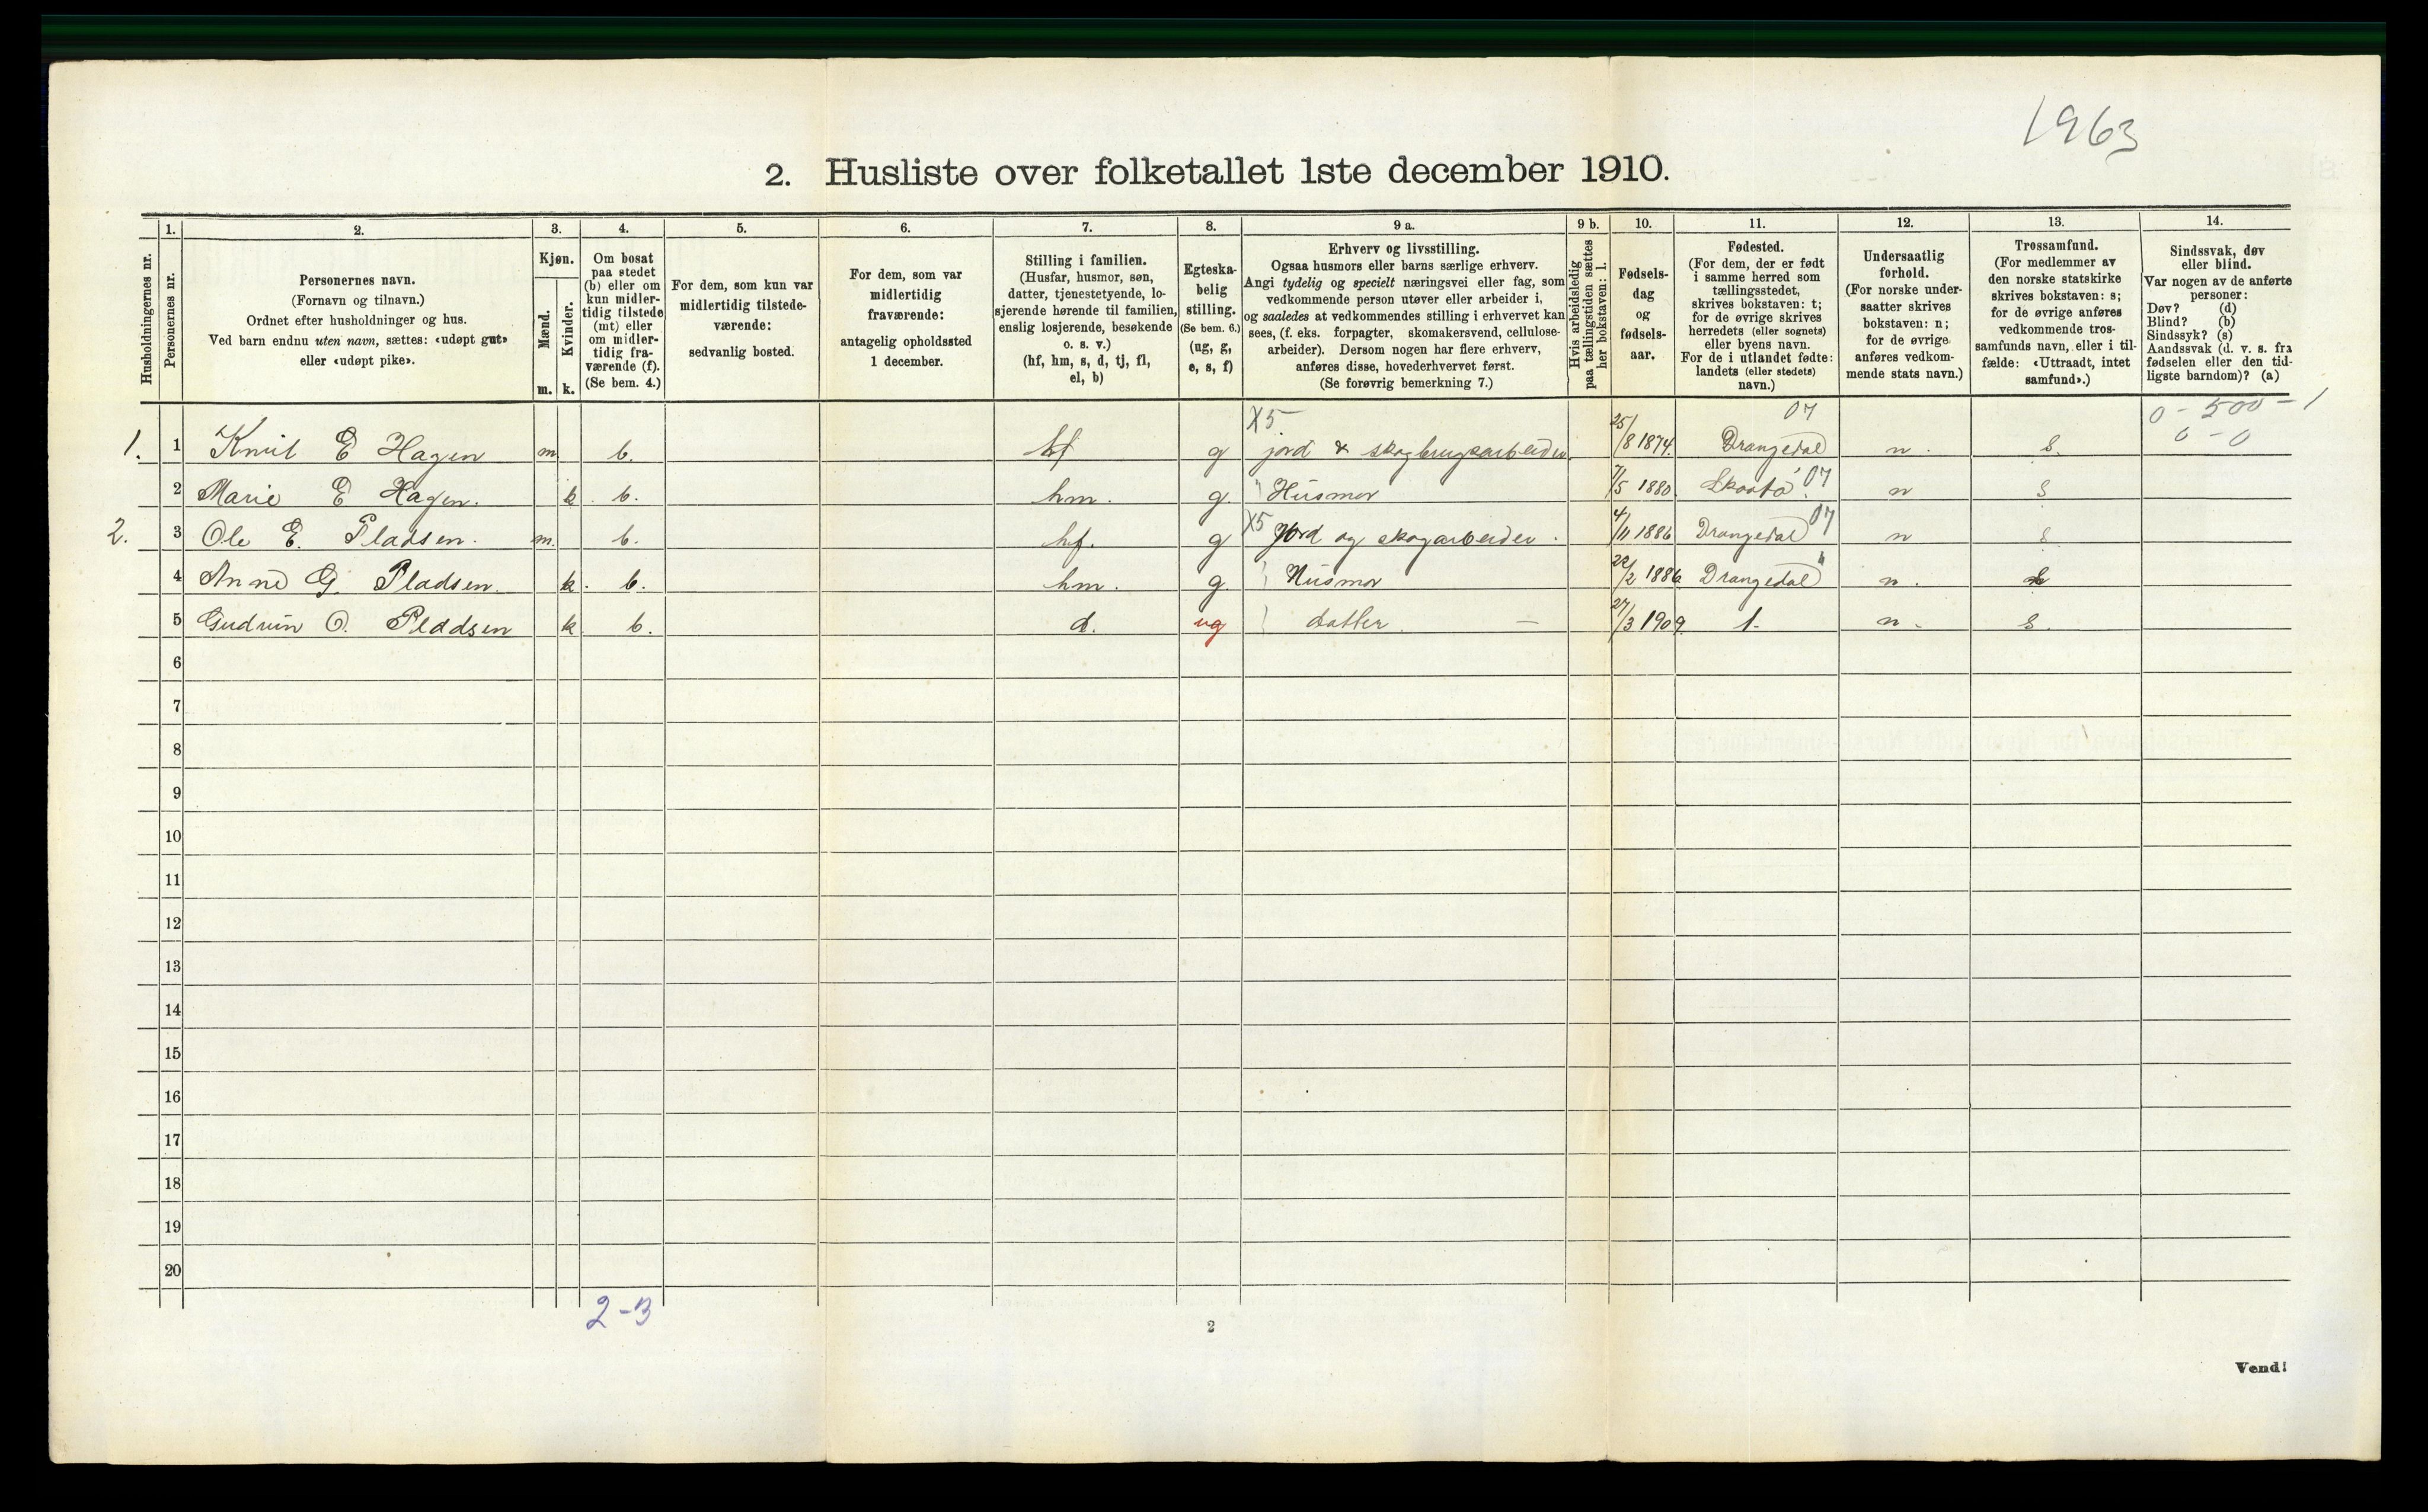 1963
2. Husliste over folketallet 1ste december 1910.
1. 2. 3. 4. 5. 6. 7. 8. 9 a. 9 b. 10. 11. 12. 13. 14.
Husholdningernes nr.
Personernes nr.
Personernes navn.
(Fornavn og tilnavn.)
Ordnet efter husholdninger og hus.
Ved barn endnu uten navn, sættes: «udøpt gut»
eller «udøpt pike».
Kjøn.
Mænd.
Kvinder.
m. k.
Om bosat
paa stedet
(b) eller om
kun midler-
tidig tilstede
(mt) eller
om midler-
tidig fra-
værende (f).
(Se bem. 4.)
For dem, som kun var
midlertidig tilstede-
værende:
sedvanlig bosted.
For dem, som var
midlertidig
fraværende:
antagelig opholdssted
1 december.
Stilling i familien.
(Husfar, husmor, søn,
datter, tjenestetyende, lo-
sjerende hørende til familien,
enslig losjerende, besøkende
o. s. v.)
(hf, hm, s, d, tj, fl,
el, b)
Egteska-
belig
stilling.
(Se bem. 6.)
(ug, g,
e, s, f)
Erhverv og livsstilling.
Ogsaa husmors eller barns særlige erhverv.
Angi tydelig og specielt næringsvei eller fag, som
vedkommende person utøver eller arbeider i,
og saaledes at vedkommendes stilling i erhvervet kan
sees, (f. eks. forpagter, skomakersvend, cellulose-
arbeider). Dersom nogen har flere erhverv,
anføres disse, hovederhvervet først.
(Se forøvrig bemerkning 7.)
Hvis arbeidsledig
paa tællingstiden sættes
her bokstaven: l.
Fødsels-
dag
og
fødsels-
aar.
Fødested.
(For dem, der er født
i samme herred som
tællingsstedet,
skrives bokstaven: t;
for de øvrige skrives
herredets (eller sognets)
eller byens navn.
For de i utlandet fødte:
landets (eller stedets)
navn.)
Undersaatlig
forhold.
(For norske under-
saatter skrives
bokstaven: n;
for de øvrige
anføres vedkom-
mende stats navn.)
Trossamfund.
(For medlemmer av
den norske statskirke
skrives bokstaven: s;
for de øvrige anføres
vedkommende tros-
samfunds navn, eller i til-
fælde: «Uttraadt, intet
samfund».)
Sindssvak, døv
eller blind.
Var nogen av de anførte
personer:
Døv? (d)
Blind? (b)
Sindssyk? (s)
Aandssvak (d. v. s. fra
fødselen eller den tid-
ligste barndom)? (a)
X5 07 0 - 500 - 1
0 - 0
1. 1 Knut E Hagen m. b. hf g jord & skogbrugsarbeider 25/8 1874. Drangedal n. s.
2 Marie E Hagen. k. b. hm. g. Husmor 7/5 1880. Skaatø 07 n s
2. 3 Ole E. Pladsen. m. b. hf. g X5 Jord og skogarbeider. 4/11 1886 Drangedal 07 n s
4 Anne G. Pladsen. k. b. hm. g. Husmor 22/2 1886 Drangedal " n. s
5 Gudrun O. Pladsen k. b. d. ug datter. — 27/3 1909. t. n. s.
6
7
8
9
10
11
12
13
14
15
16
17
18
19
20
2-3
2
Vend!